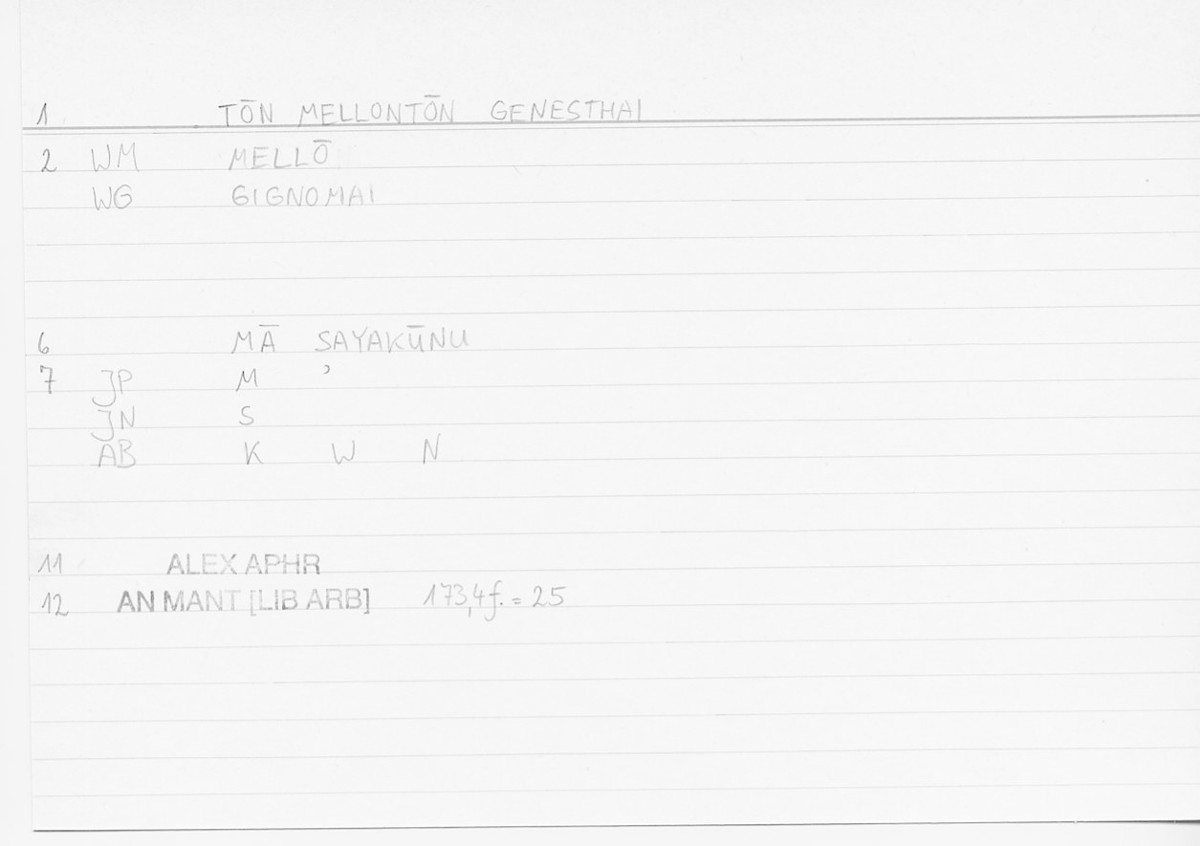 1 TŌN MELLONTŌN GENESTHAI
2 WM MELLŌ
WG GIGNOMAI
6 MĀ SAYAKŪNU
7 JP M ʾ
JN S
AB K W N
11 ALEX APHR
12 AN MANT [LIB ARB] 173,4f. = 25